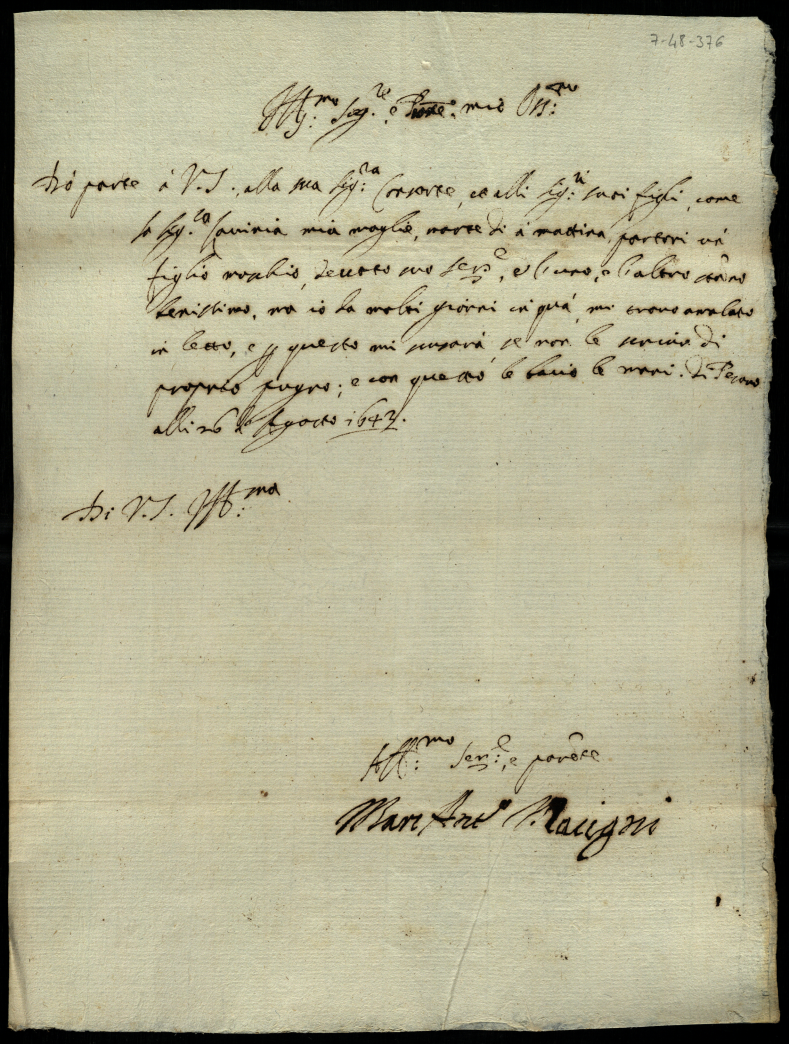 7-48-376
Ill:mo Sig.re e Prone: mio Oss:mo
Dò parte à V.S., alla sua Sig:ra Consorte, et alli Sig:ri suoi figli, come
la Sig.ra Lavinia mia moglie, marte di à mattina, partorì un
figlio maschio, devoto suo Ser:e, e l'uno, e l'altro stãno
benissimo, ma io da molti giorni in quà, mi trovo amalato
in letto, e p questo mi scusarà se non le scrivo di
proprio pugno; e con questo le bacio le mani. Di Pesaro
alli 26 d'Agosto 1642.
Di V.S. Ill:ma
Aff:mo Ser:e, e parẽte
Marc Ant.o